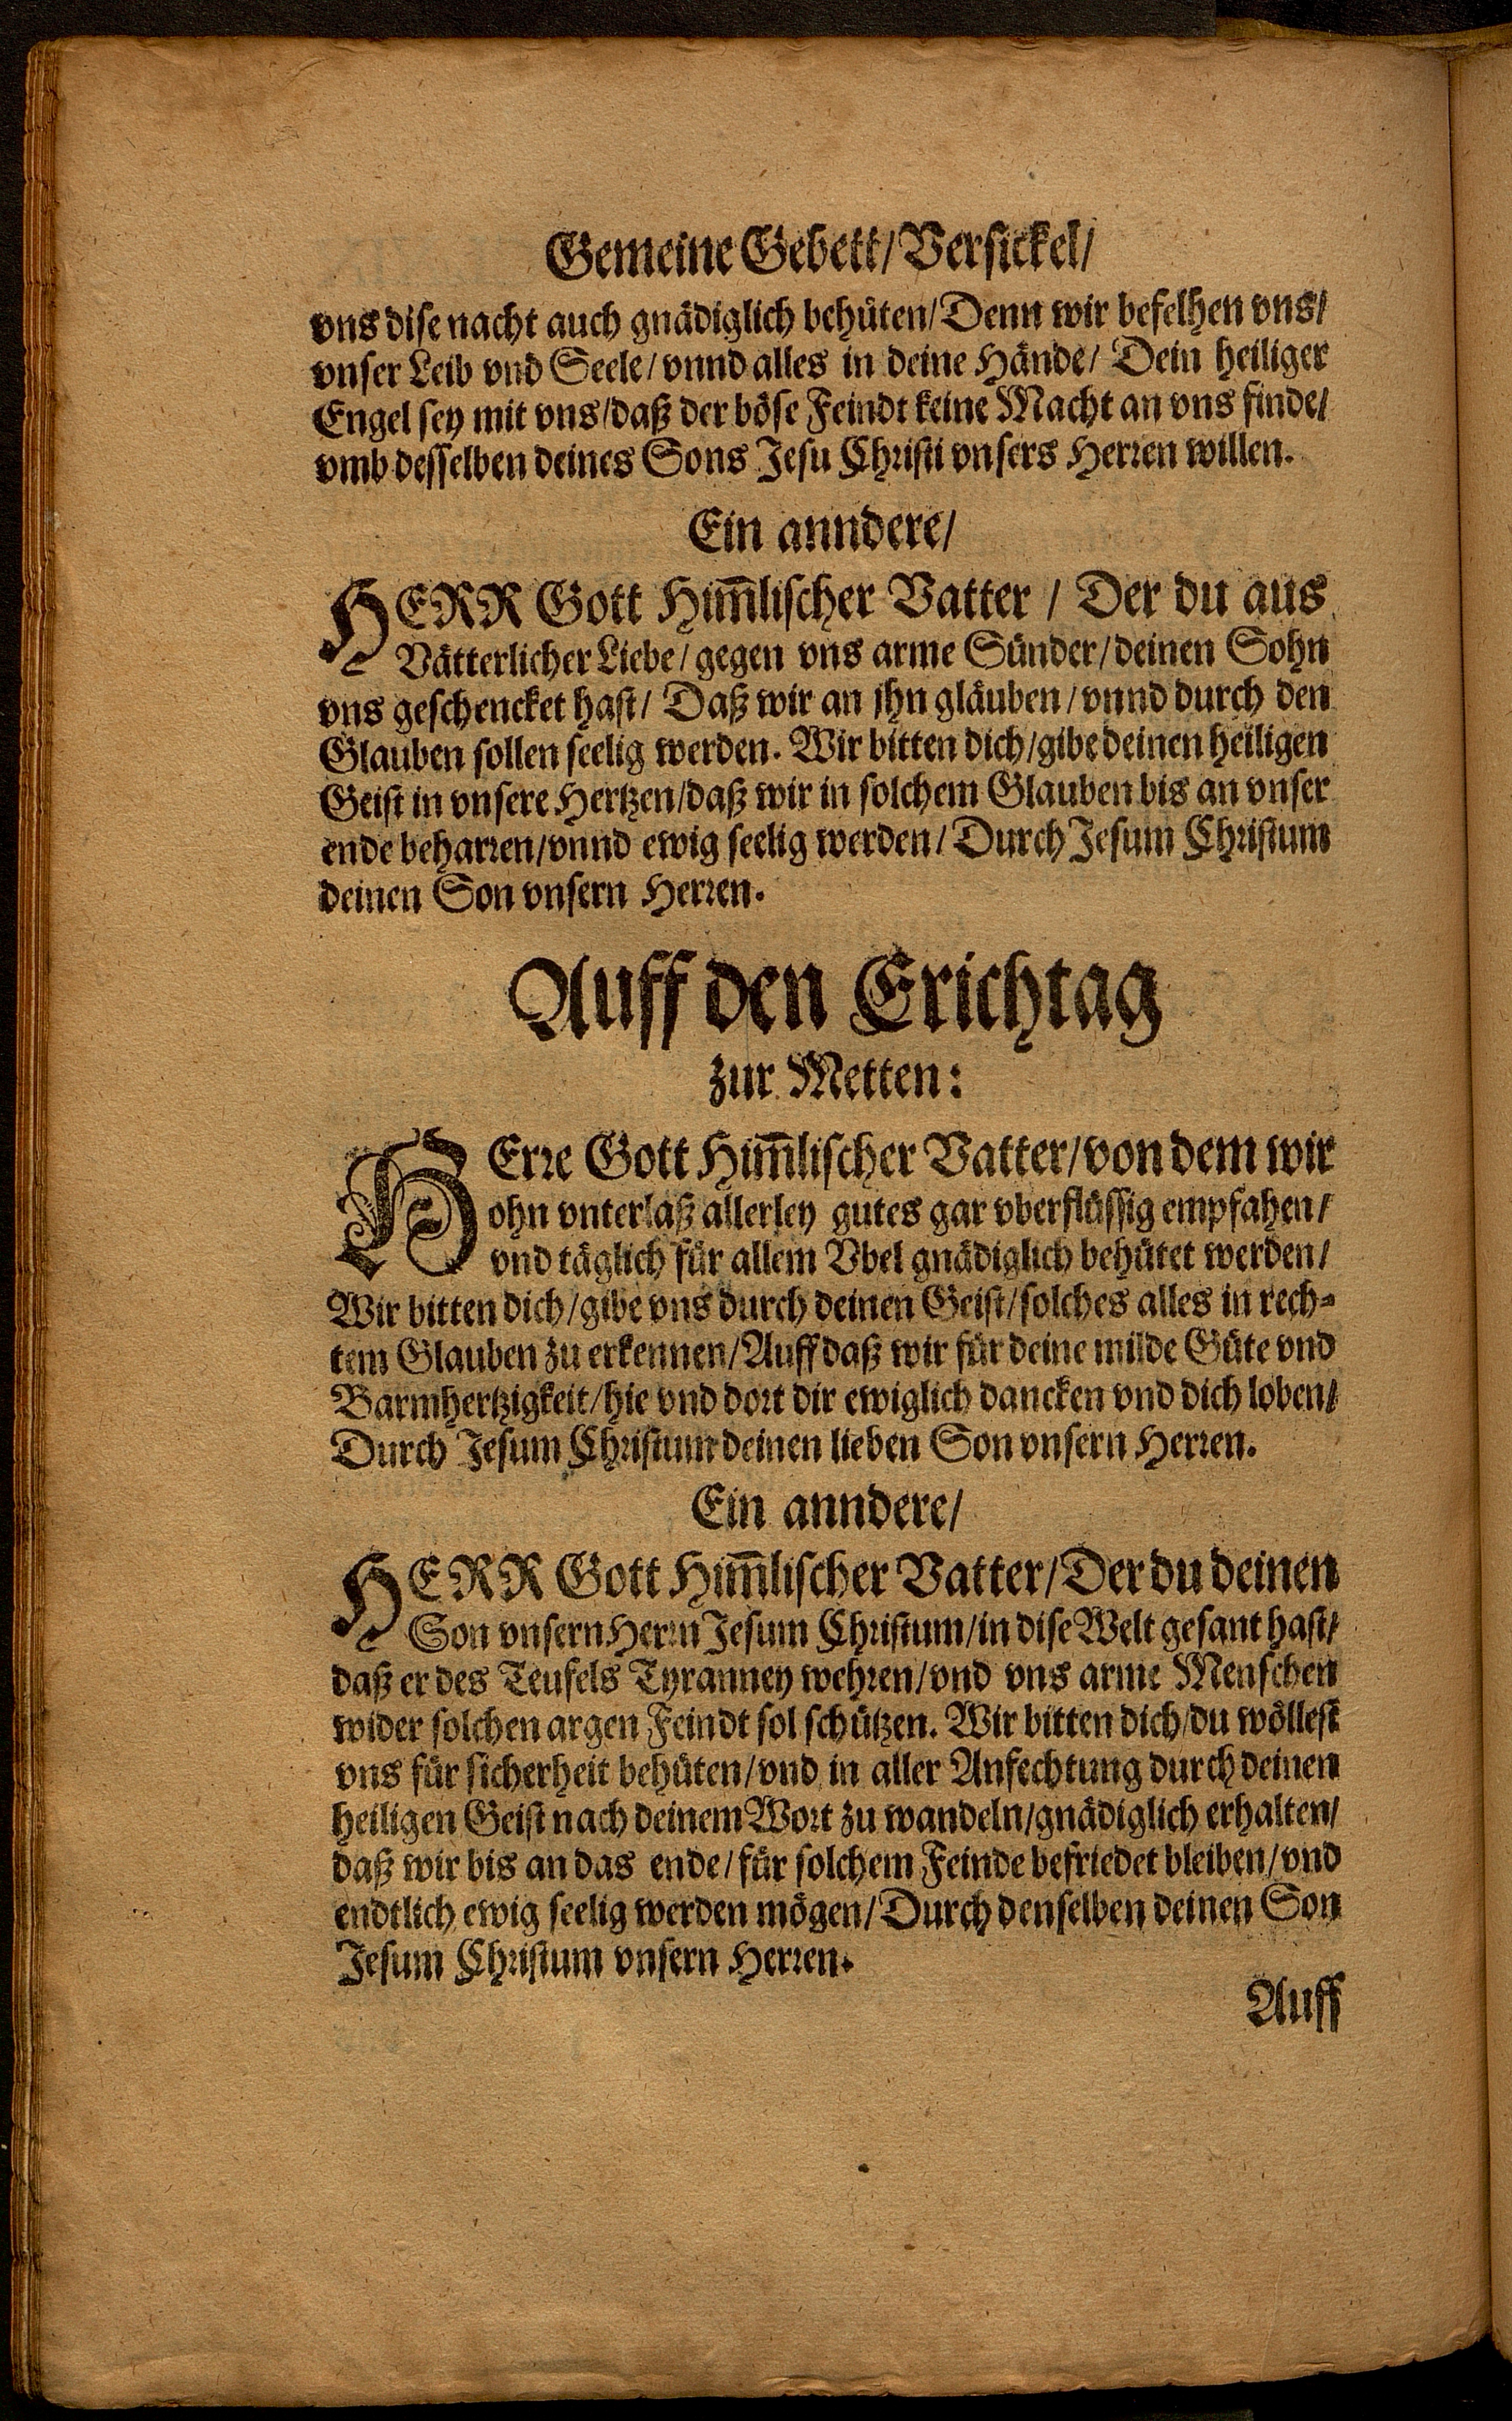 Gemeine Gebett/ Versickel/
vns dise nacht auch gnädiglich behüten/ Denn wir befelhen vns/
vnser Leib vnd Seele/ vnnd alles in deine Hände/ Dein heiliger
Engel sey mit vns/ daß der böse Feindt keine Macht an vns finde/
vmb desselben deines Sons Jesu Christi vnsers Herren willen.
Ein anndere/
HERR Gott Him̃lischer Vatter / Der du aus
Vätterlicher Liebe/ gegen vns arme Sünder/ deinen Sohn
vns geschencket hast/ Daß wir an jhn gläuben/ vnnd durch den
Glauben sollen seelig werden. Wir bitten dich/ gibe deinen heiligen
Geist in vnsere Hertzen/ daß wir in solchem Glauben bis an vnser
ende beharren/ vnnd ewig seelig werden/ Durch Jesum Christum
deinen Son vnsern Herren.
Auff den Erichtag
zur Metten:
HErre Gott Him̃lischer Vatter/ von dem wir
ohn vnterlaß allerley gutes gar vberflüssig empfahen/
vnd täglich für allem Vbel gnädiglich behütet werden/
Wir bitten dich/ gibe vns durch deinen Geist/ solches alles in rech=
tem Glauben zu erkennen/ Auff daß wir für deine milde Güte vnd
Barmhertzigkeit/ hie vnd dort dir ewiglich dancken vnd dich loben/
Durch Jesum Christum deinen lieben Son vnsern Herren.
Ein anndere/
HERR Gott Him̃lischer Vatter/ Der du deinen
Son vnsern Herrn Jesum Christum/ in dise Welt gesant hast/
daß er des Teufels Tyranney wehren/ vnd vns arme Menschen
wider solchen argen Feindt sol schützen. Wir bitten dich/ du wöllest
vns für sicherheit behüten/ vnd in aller Anfechtung durch deinen
heiligen Geist nach deinem Wort zu wandeln/ gnädiglich erhalten/
daß wir bis an das ende/ für solchem Feinde befriedet bleiben/ vnd
endtlich ewig seelig werden mögen/ Durch denselben deinen Son
Jesum Christum vnsern Herren.
Auff